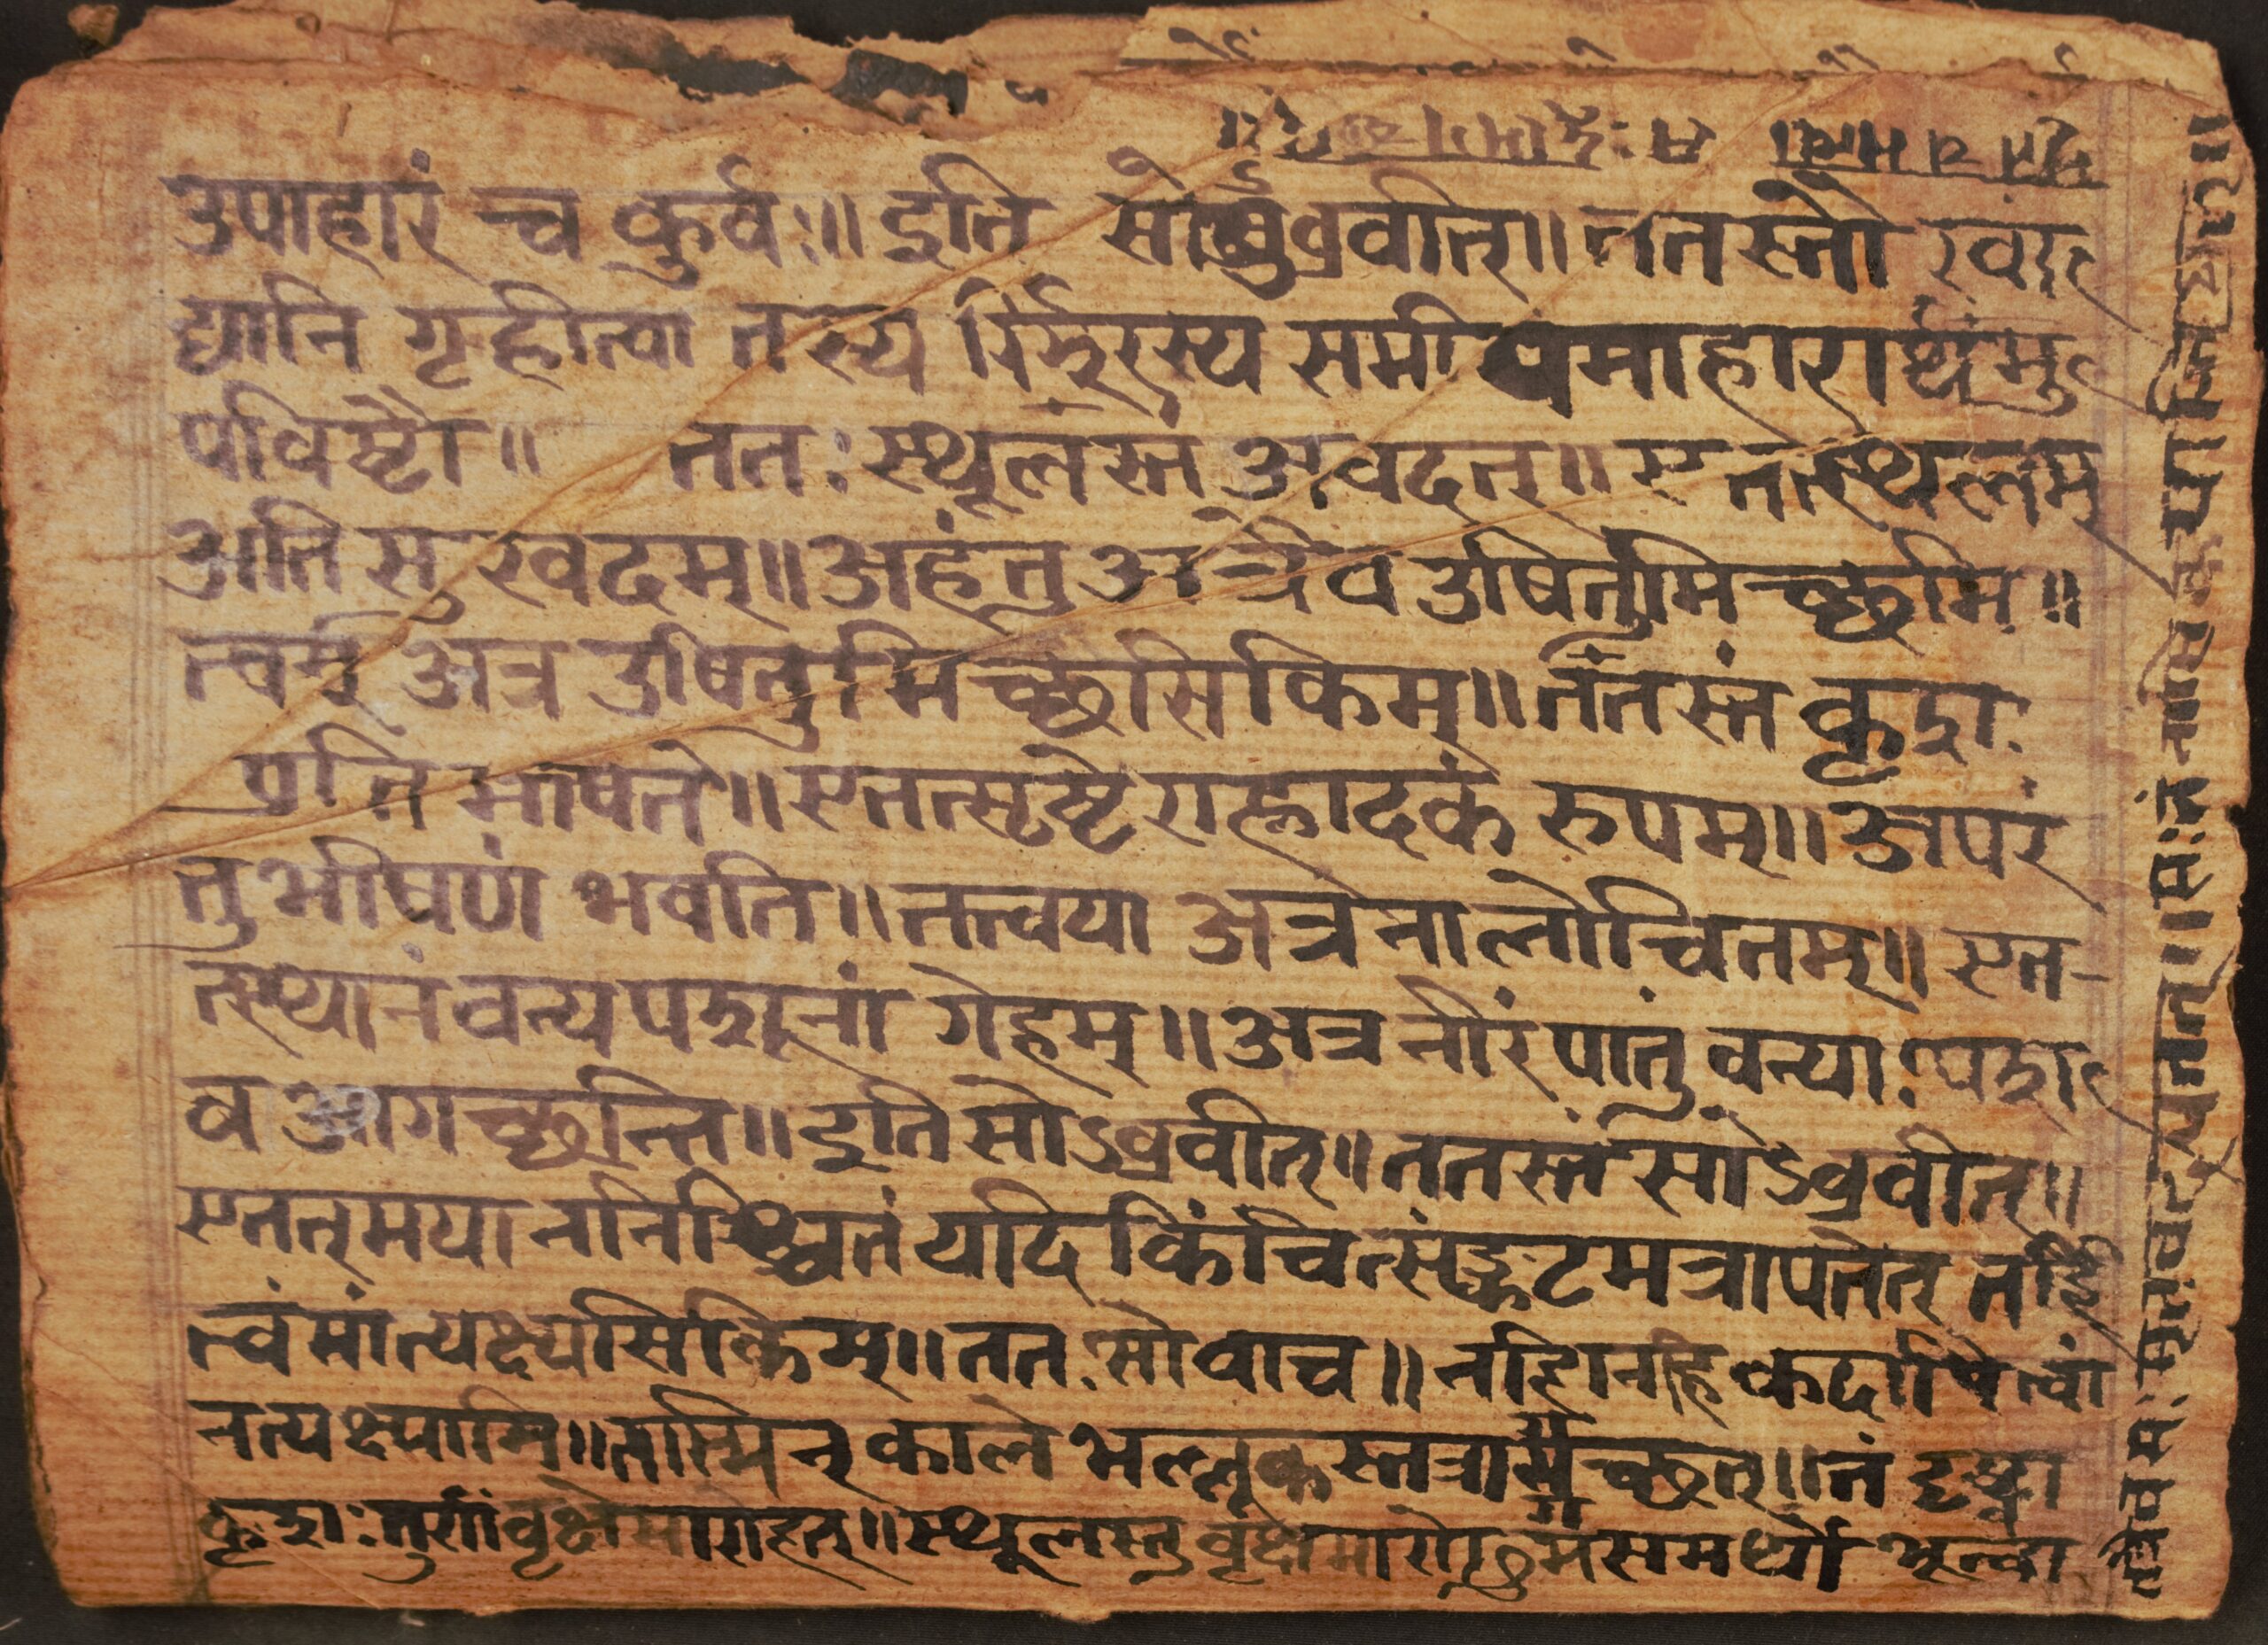 उपाहारं च कुर्वः॥ इति सोऽब्रवीत्॥ ततस्तौ खा
द्यानि गृहीत्वा तस्य समीपमाहारार्थमु
पविष्टौ॥ ततः स्थूलस्तं अवदत्॥ एतत्स्थलम्
अति सुखदम्॥ अहं तु अत्रैव उषितुमिच्छामि॥
त्वम् अत्र उषितुमिच्छसि किम्॥ ततस्तं कृशः
प्रति भाषते॥ एतत्सृष्टेराह्लादकं रुपम्॥ अपरं
तु भीषणं भवति॥ तत्त्वया अत्र नालोचितम्॥ एत-
त्स्थानं वन्य पशूनां गेहम्॥ अत्र नीरं पातुं वन्याः पश
व आगच्छन्ति॥ इति सोऽब्रवीत्॥ ततस्तं सोऽब्रवीत्॥
एतत् मया न निश्चितं यदि किंचित्संङ्कटमत्रापतेत् तर्हि
त्वं मां त्यक्ष्यसि किम्॥ ततः सोवाच॥ नहि नहि कदापि त्वां
न त्यक्ष्यामि॥ तस्मिन् काले भल्लूकस्तत्रागच्छत्॥ तं दृष्ट्वा
कृशः तुर्णं वृक्षमारोहत्॥ स्थूलस्तु वृक्षमारोढुमसमर्थो भूत्वा
तत्रैव सः मृतवत्